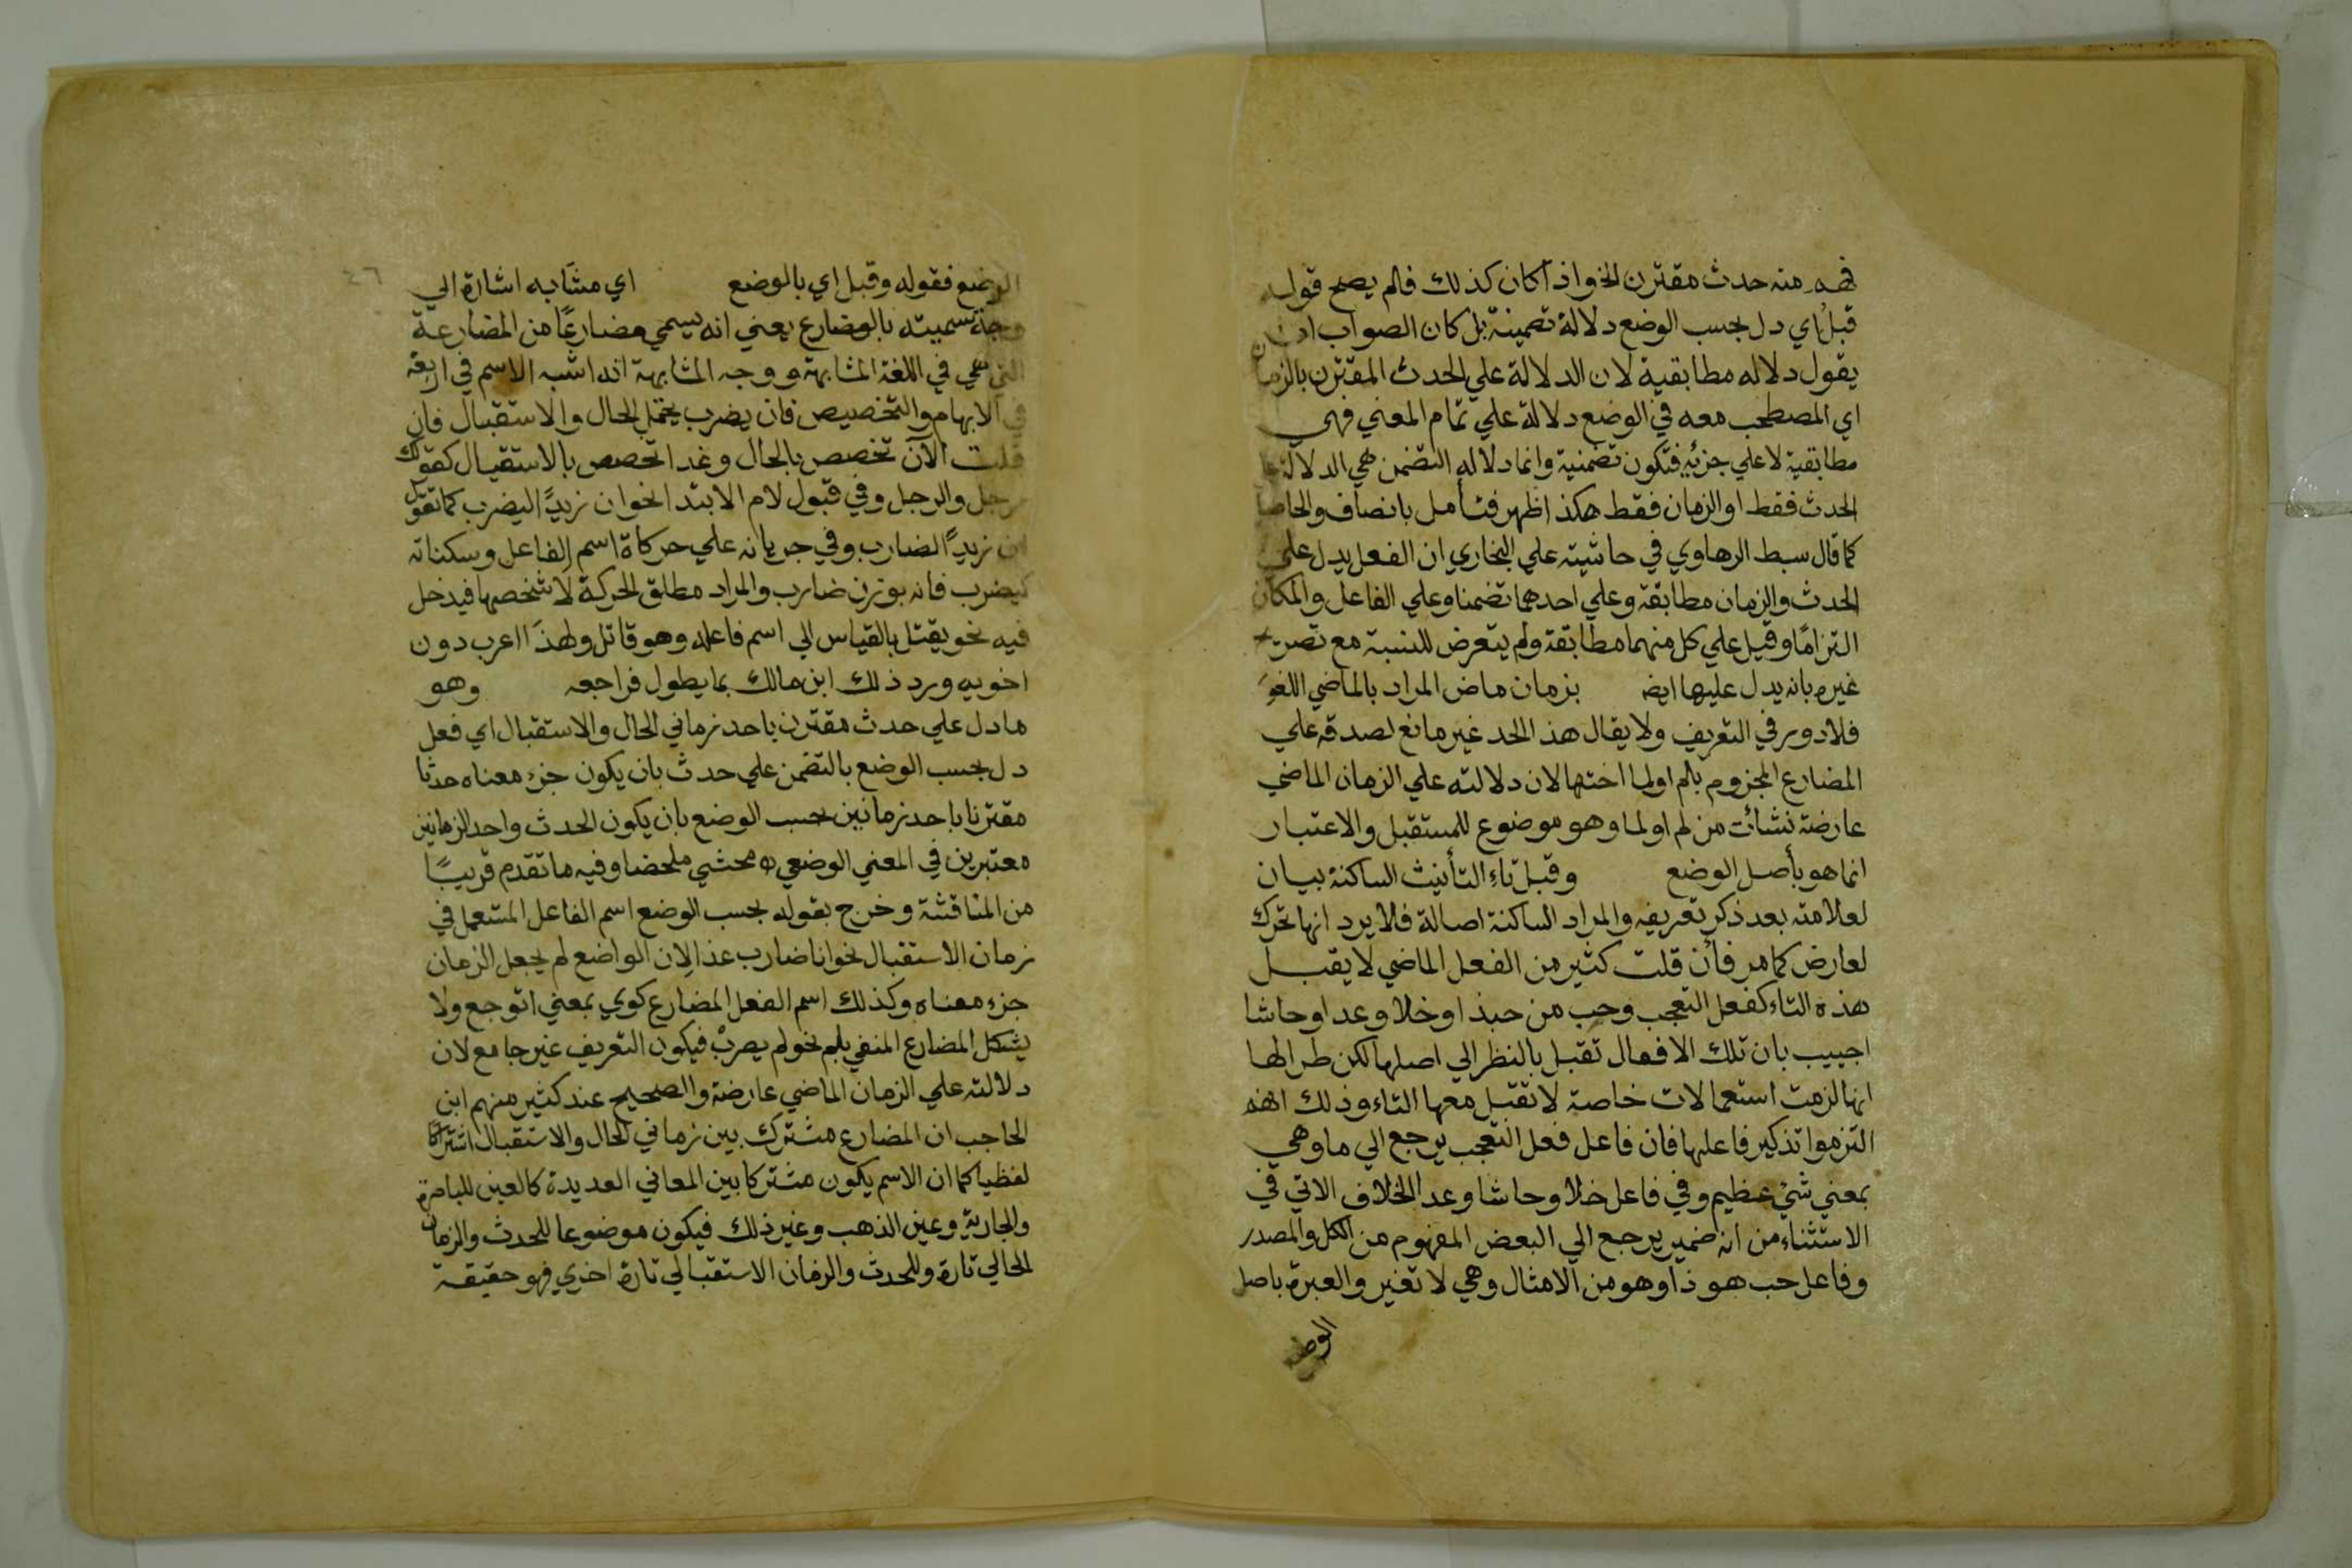 فهم منه حدث مقترن الخواذا كان كذلك فلم يصح قوله
قبل اي دل بحسب الوضع دلالة تضمينة بل كان الصواب ان
يقول دلاله مطابقية لان الدلالة علي الحدث المقترن بالزمان
اي المصطحب معه في الوضع دلالة علي تمام المعني فهي
مطابقية لا علي جزئه فتكون تضمنية وانما دلاله التضمن هي الدلالة علي
الحدث فقط او الزمان فقط هكذا ظهر فتأمل بانصاف والحاصل
كما قال سبط الرهاوي في حاشيته علي البخاري ان الفعل يدل علي
الحدث والزمان مطابقة وعلي احدهما تضمنا وعلي الفاعل والمكان
التزامًا وقيل علي كل منهما مطابقة ولم يتعرض للنسبة مع تصريح
غيره بانه يدل عليها ايضا بزمان ماض المراد بالماضي اللغوي
فلا دور في التعريف ولا يقال هذ الحد غير مانع لصدقه علي
المضارع المجزوم بلم او لما اختها لان دلالته علي الزمان الماضي
عارضة نشأت من لم او لما وهو موضوع للمستقبل والاعتبار
انما هو بأصل الوضع وقبل تاء التأنيث الساكنة بيان
لعلامته بعد ذكر تعريفه والمراد الساكنة اصالة فلا يرد انها تحرك
لعارض كما مر فأن قلت كثير من الفعل الماضي لا يقبل
هذه التاء كفعل التعجب وحب من حبذا وخلا وعدا وحاشا
اجيب بان تلك الافعال تقبل بالنظر الي اصلها لكن طرا لها
انها لزمت استعمالات خاصة لا تقبل معها التاء وذلك انهم
التزموا تذكير فاعلها فان فاعل فعل التعجب يرجع الي ما وهي
بمعني شيْ عظيم وفي فاعل خلا وحاشا وعدا الخلاف الاتي في
الاستثناء من انه ضمير يرجع الي البعض المفهوم من الكل والمصدر
وفاعل حب هو ذا وهو من الامثال وهي لا تغير والعبرة باصل
الوضع
٤٦
الوضع فقوله وقبل اي بالوضع اي مشابه اشارة الي
وجه تسميته بالمضارع يعني انه يسمي مضارعًا من المضارعة
التي هي في اللغة المشابهة ووجه المشابهة انه اشبه الاسم في اربعة
في الابهام والتخصيص فان يضرب يحتمل الحال والاستقبال فان
قلت الآن تخصص بالحال وغدا تخصص بالاستقبال كقولك
رجل والرجل وفي قبول لام الابتدا نحو ان زيدًا ليضرب كما تقول
ان زيدًا لضارب وفي جريانه علي حركاة اسم الفاعل وسكناته
كيضرب فانه بوزن ضارب والمراد مطلق الحركة لا شخصها فيدخل
فيه نحو يقتل بالقياس الي اسم فاعله وهو قاتل ولهذا اعرب دون
اخويه ورد ذلك ابن مالك بما يطول فراجعه وهو
ما دل علي حدث مقترن باحد زماني الحال والاستقبال اي فعل
دل بحسب الوضع بالتضمن علي حدث بان يكون جزء معناه حدثا
مقترنا باحد زمانين بحسب الوضع بان يكون الحدث واحد الزمانين
معتبرين في المعني الوضعي اه محشي ملخصا وفيه ما تقدم قريبًا
من المناقشة وخرج بقوله بحسب الوضع اسم الفاعل المستعمل في
زمان الاستقبال نحو انا ضارب غدا لان الواضع لم يجعل الزمان
جزء معناه وكذلك اسم الفعل المضارع كوي بمعني اتوجع ولا
يشكل المضارع المنفي بلم نحو لم يضربْ فيكون التعريف غير جامع لان
دلالته علي الزمان الماضي عارضة والصحيح عند كثير منهم ابن
الحاجب ان المضارع مشترك بين زماني الحال والاستقبال اشتراكا
لفظيا كما ان الاسم يكون مشتركا بين المعاني العديدة كالعين للباصرة
والجارية وعين الذهب وغير ذلك فيكون موضوعا للحدث والزمان
الحالي تارة وللحدث والزمان الاستقبالي تارة اخري فهو حقيقة